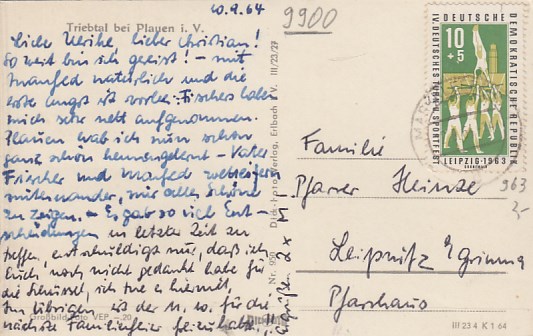 10.9.64
9900
Triebtal bei Plauen i. V.
Liebe Ulrike, lieber Christian!
So weit bin ich gereist! – mit
Manfred natürlich und die
erste Angst ist vorbei. Fischers haben
mich sehr nett aufgenommen.
Plauen hab ich nun schon
ganz schön kennengelernt – Vater
Fischer und Manfred wetteifern
miteinander, mir alles Schöne
zu zeigen. – Es gab so viel Ent-
scheidungen in letzter Zeit zu
treffen, entschuldigt nur, daß ich
Euch noch nicht gedankt habe für
die Schüssel, ich tue es hiermit,
Im übrigen ist der 11. 10. für die
nächste Familienfeier
Großbildfoto VEP –.20
Dick-Foto-Verlag, Erlbach i. V. III/23/27
Nr. 990
DEUTSCHE DEMOKRATISCHE REPUBLIK
IV. DEUTSCHES TURN- U. SPORTFEST
10
+5
LEIPZIG · 1963
Familie
Pfarrer Heinze
963
2,-
Leipnitz ü/Grimma
Pfarrhaus
III 23 4 K 1 64